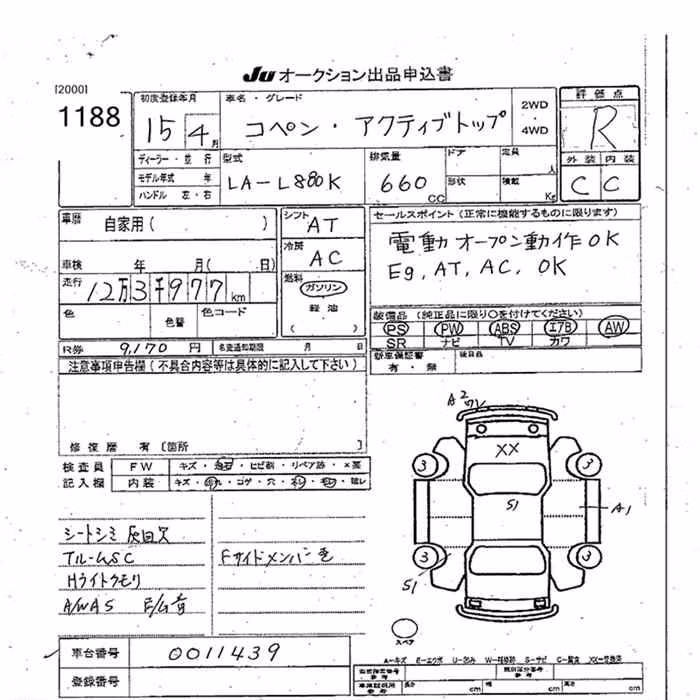 JU オークション出品申込書
[2000]
1188
初度登録年月
15 4月
車名・グレード
コペン・アクティブトップ
2WD
・
4WD
評価点
R
外装 内装
C C
ディーラー・並行
モデル年式 年
ハンドル 左・右
型式
LA-L880K
排気量
660 CC
ドア
形状
定員 人
積載 Kg
車歴
自家用( )
車検 年 月( 日)
走行
12万3千977km
色
色替
色コード
シフト
AT
冷房
AC
燃料
ガソリン
軽油
( )
セールスポイント(正常に機能するものに限ります)
電動オープン動作OK
Eg, AT, AC, OK
装備品(純正品に限り○を付けてください)
PS PW ABS エアB AW
SR ナビ TV カワ
新車保証書
有・無
後日品
R券 9,170円
名変通知期限 月 日
注意事項申告欄(不具合内容等は具体的に記入して下さい)
修復歴 有〔箇所 〕
検査員
記入欄
FW
キズ・飛石・ヒビ割・リペア跡・×要
内装
キズ・汚れ・コゲ・穴
シートシミ 灰皿欠
Fサイドメンバー歪
Hライトクモリ
A/WAS E/G音
車台番号
0011439
登録番号
A2 ワレ
XX
3 3
S1
A1
3 3
S1
スペア
A-キズ E-エクボ U-凹み S-サビ C-腐食 XX-交換済
長さ cm 幅 cm cm